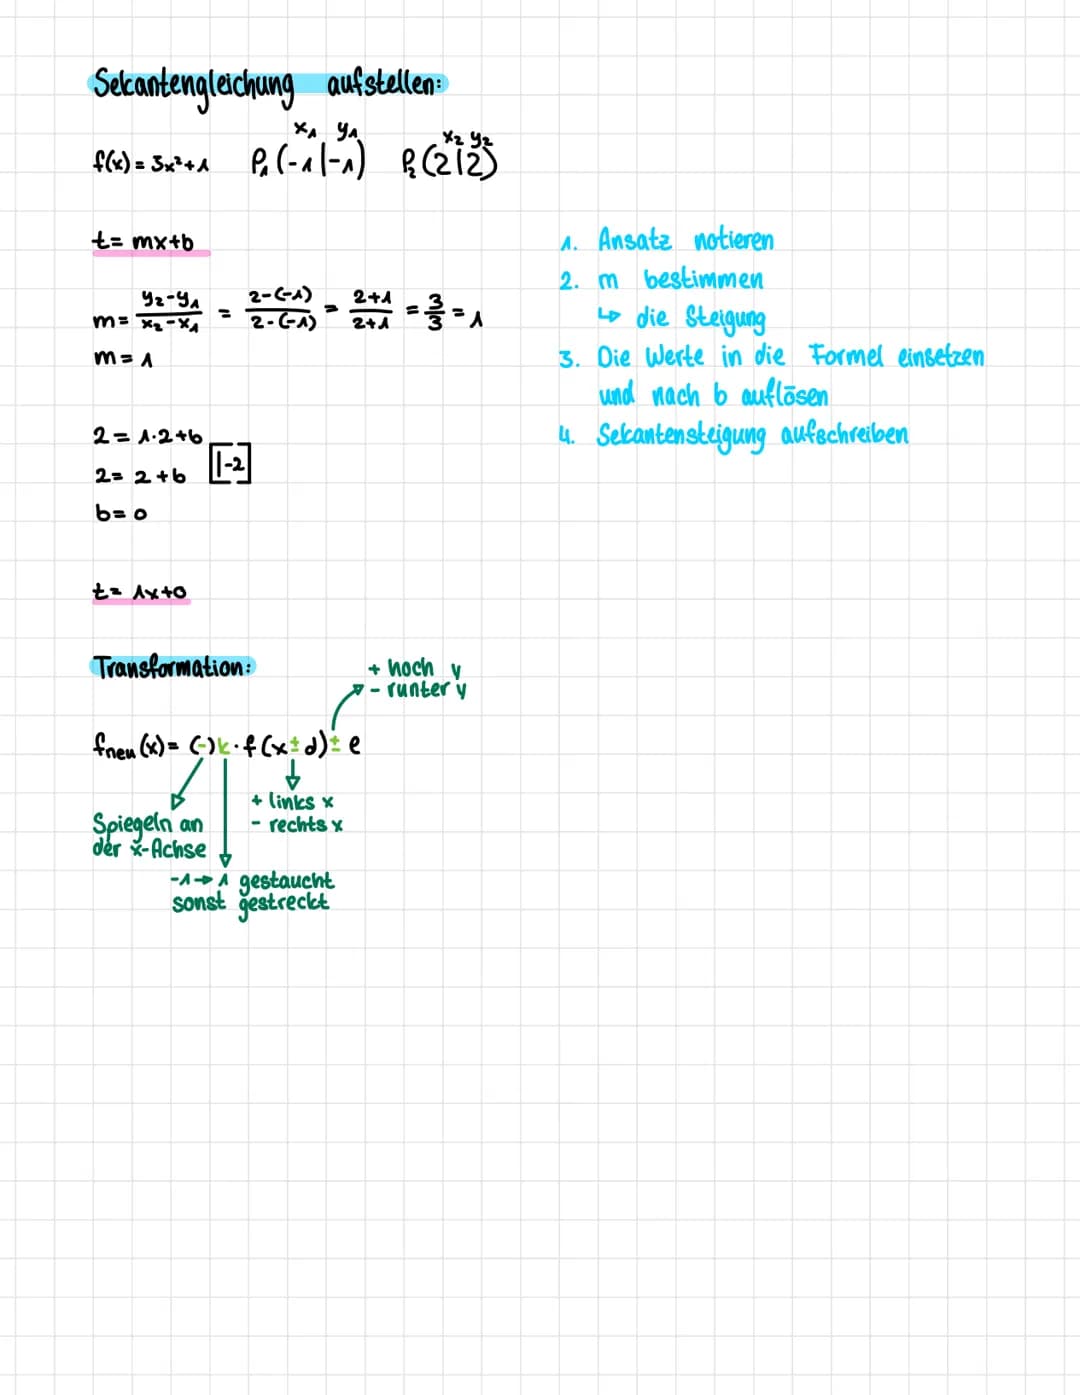 Sekantengleichung aufstellen:
x₁ y₁ x₂ y₂
f(x) = 3x²+1 P₁(-1|-1) P₂(2|2)
t= mx+b
m= (y₂-y₁)/(x₂-x₁) = (2-(-1))/(2-(-1)) = (2+1)/(2+1) = 3/3 = 1
m= 1
2= 1·2+b
2= 2+b [|-2]
b= 0
t= 1x+0
1. Ansatz notieren
2. m bestimmen
↳ die Steigung
3. Die Werte in die Formel einsetzen
und nach b auflösen
4. Sekantensteigung aufschreiben
Transformation:
+ hoch y
- runter y
fneu(x)= (-)k·f(x±d)± e
+ links x
- rechts x
Spiegeln an
der x-Achse
-1→1 gestaucht
sonst gestreckt